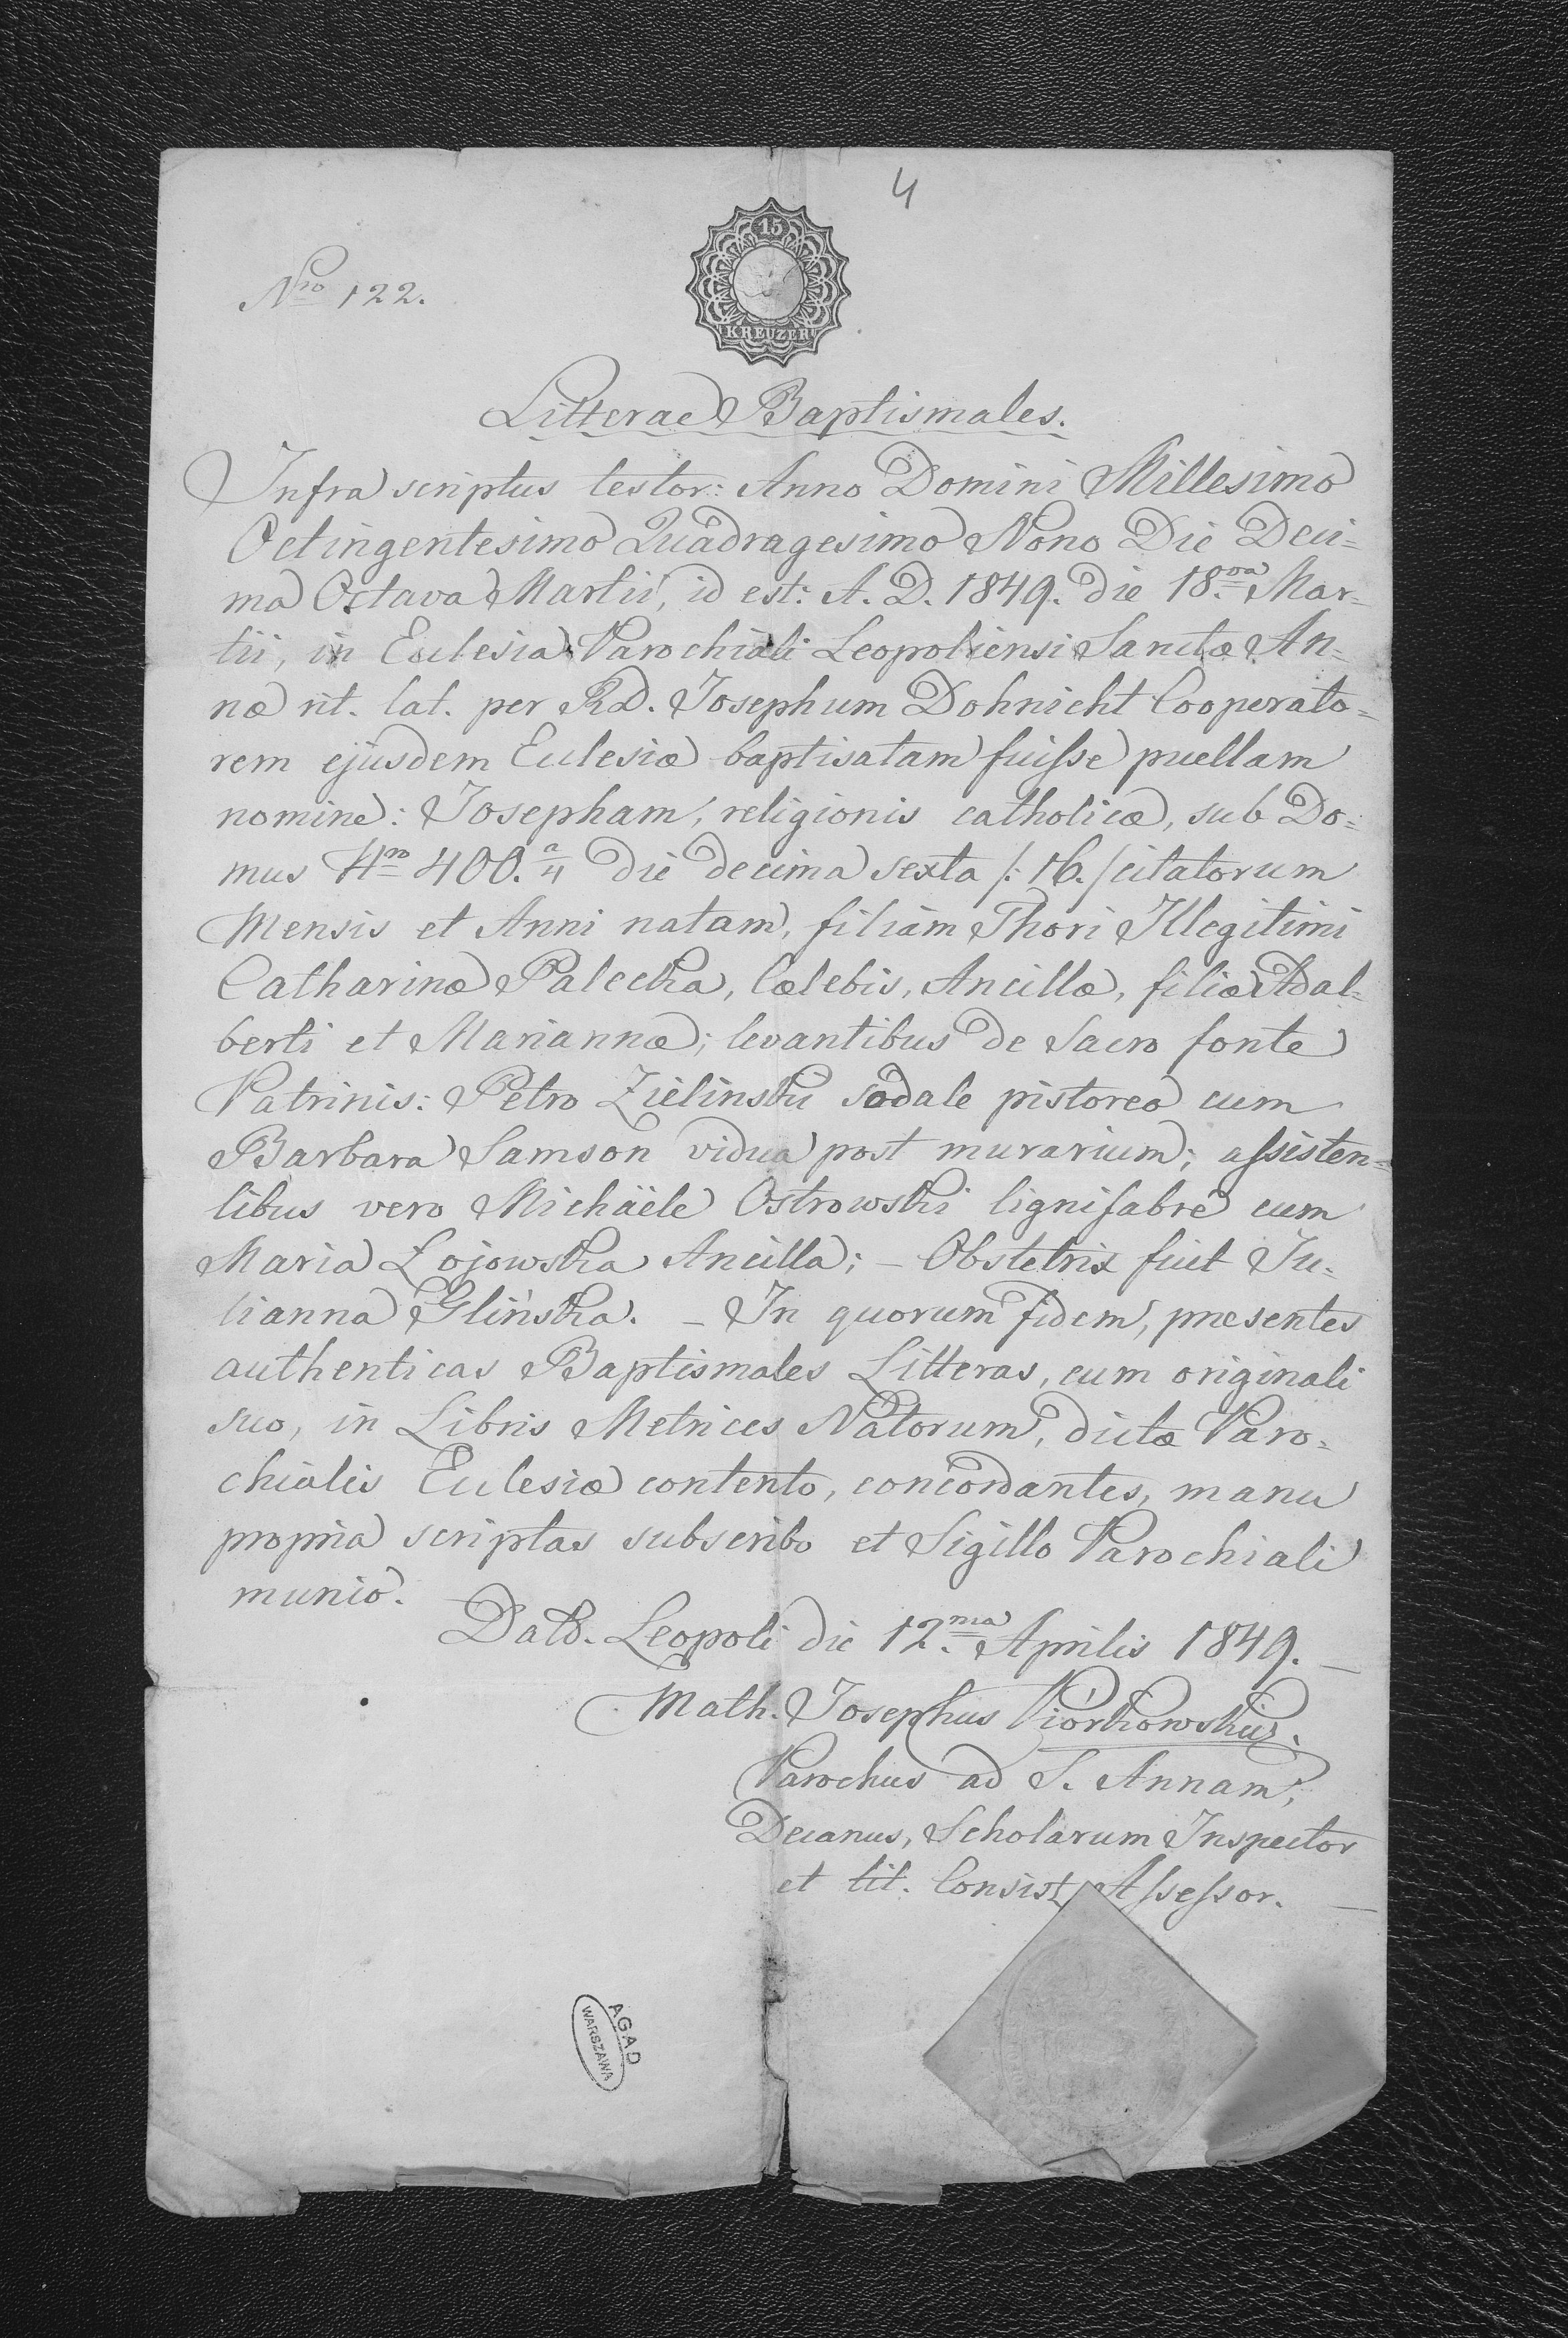 4
15
KREUZER
Nro 122.
Litterae Baptismales.
Infra scriptus testor: Anno Domini Millesimo
Octingentesimo Quadragesimo Nono Die Deci=
ma Octava Martii, id est: A. D. 1849. die 18.va Mar=
tii, in Ecclesia Parochiali Leopoliensi Sanctæ An=
næ rit. lat. per RD. Josephum Dohnicht Cooperato=
rem ejusdem Ecclesiæ baptisatam fuiſse puellam
nomine: Josepham, religionis catholicæ, sub Do=
mus Nro 400. a/4 die decima sexta /: 16. / citatorum
Mensis et Anni natam, filiam Thori Illegitimi
Catharinæ Palecka, Cælebis, Ancillæ, filiæ Adal=
berti et Mariannæ; levantibus de Sacro fonte
Patrinis: Petro Zielinski sodale pistoreo cum
Barbara Samson vidua post murarium; aſsisten=
tibus vero Michaële Ostrowski lignifabre cum
Maria Łojowska Ancilla; – Obstetrix fuit Ju=
lianna Glińska. – In quorum fidem, præsentes
authenticas Baptismales Litteras, cum originali
suo, in Libris Metrices Natorum, dictæ Paro=
chialis Ecclesiæ contento, concordantes, manu
propria scriptas subscribo et Sigillo Parochiali
munio.
Datb. Leopoli die 12.ma Aprilis 1849. —
Math. Josephus Piórkowski.
Parochus ad S. Annam,
Decanus, Scholarum Inspector
et tit. Consist. Aſseſsor. —
AGAD
WARSZAWA